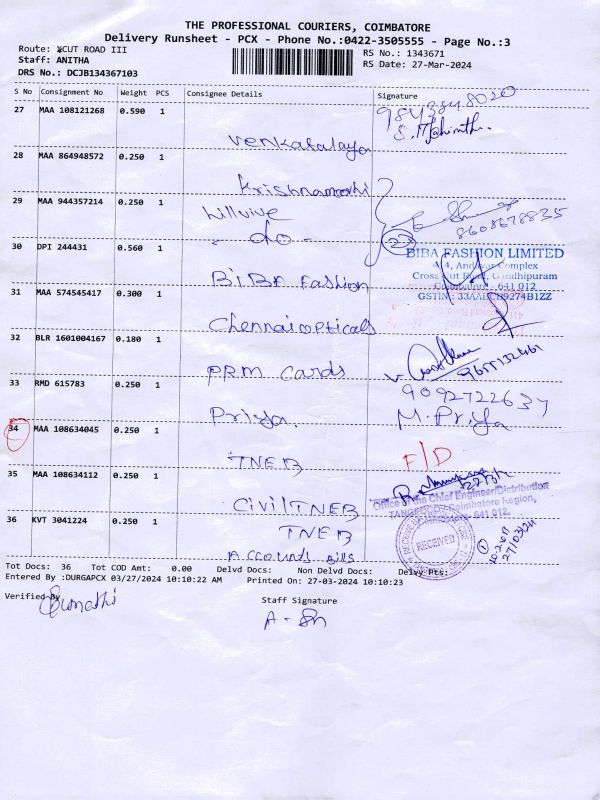 THE PROFESSIONAL COURIERS, COIMBATORE
Delivery Runsheet - PCX - Phone No.:0422-3505555 - Page No.:3
Route: XCUT ROAD III
RS No.: 1343671
Staff: ANITHA
RS Date: 27-Mar-2024
DRS No.: DCJB134367103
S No Consignment No Weight PCS Consignee Details Signature
27 MAA 108121268 0.590 1
9843848020
Venkatalaya
28 MAA 864948572 0.250 1
Krishnamoorthi
29 MAA 944357214 0.250 1
8608678835
- do -
22
30 DPI 244431 0.560 1
BIBA FASHION LIMITED
Complex
Cross Cut Road, Gandhipuram
Coimbatore - 641 012
BIBA Fashion
31 MAA 574545417 0.300 1
GSTIN: 33AABCB9274B1ZZ
Chennai opticals
32 BLR 1601004167 0.180 1
PRM Cards
33 RMD 615783 0.250 1
9092722637
Priya.
M. Priya
34 MAA 108634045 0.250 1
F/D
TNEB
35 MAA 108634112 0.250 1
Office of the Chief Engineer/Distribution
TANGEDCO / Coimbatore Region,
Coimbatore- 641 012.
Civil TNEB
RECEIVED
36 KVT 3041224 0.250 1
TNEB
27/03/24
Accounds Bills
Tot Docs: 36 Tot COD Amt: 0.00 Delvd Docs: Non Delvd Docs: Delvy Pts:
Entered By :DURGAPCX 03/27/2024 10:10:22 AM Printed On: 27-03-2024 10:10:23
Verified By
Staff Signature